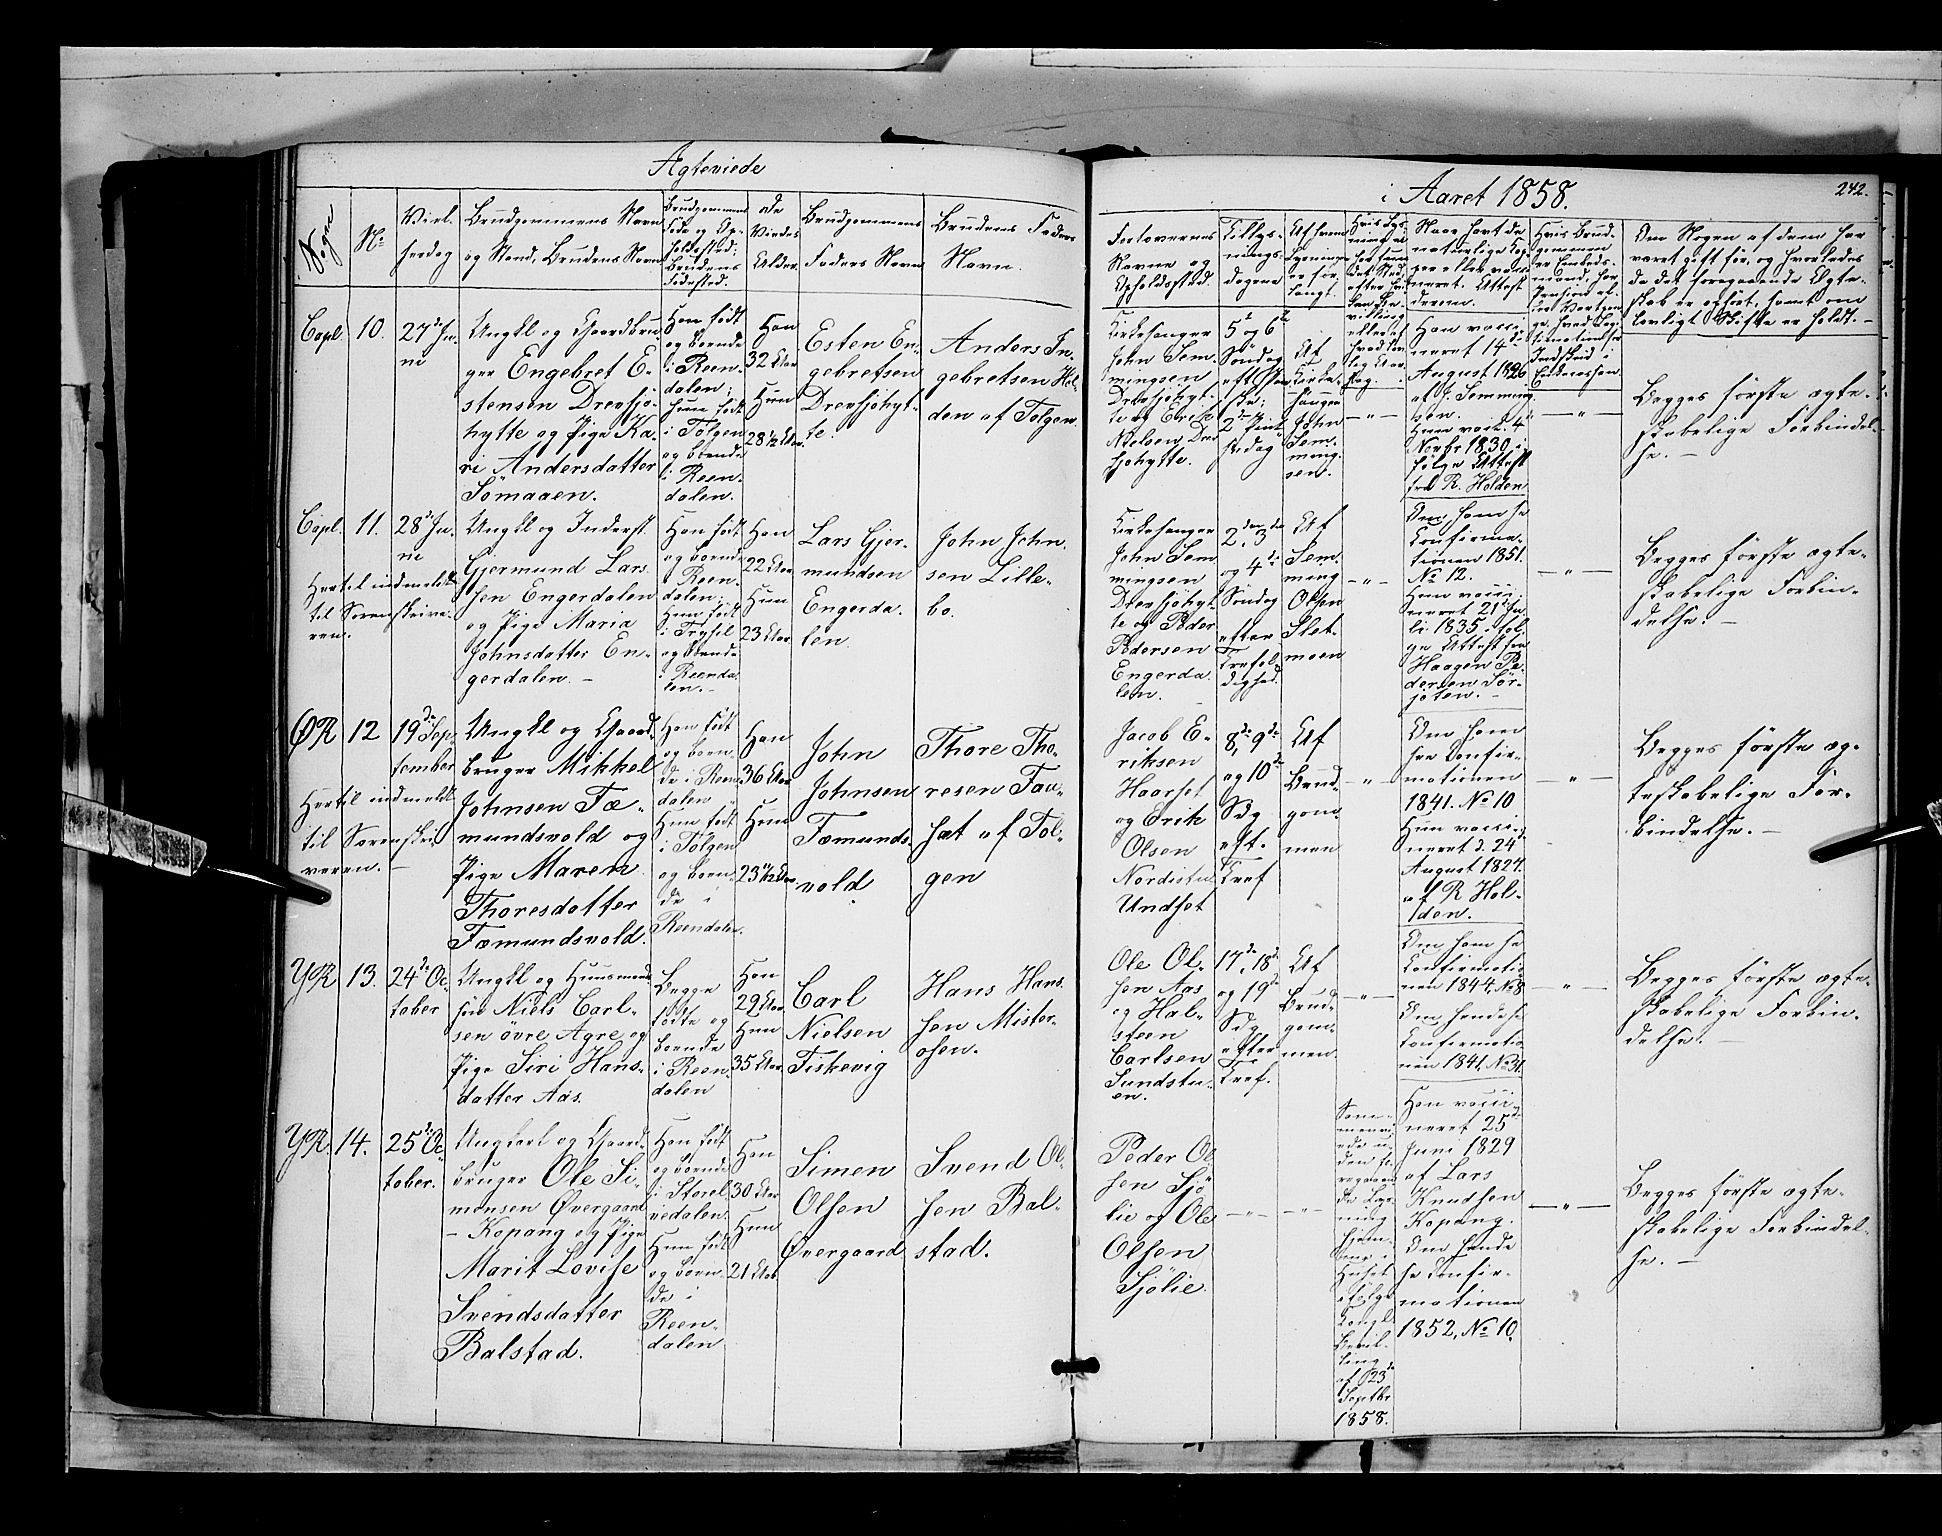 Ægteviede
i Aaret 1858.
242.
Sogne
No
Viel-
sesdag
Brudgommens Navn
og Stand, Brudens Navn
Brudgommens
Føde og Op-
holdssted;
Brudens
Fødested.
de
Viedes
Alder.
Brudgommens
Faders Navn
Brudens Faders
Navn.
Forlovernes
Navne og
Opholdssted.
Tillys-
nings-
dagene
Om Nogen af dem har
været gift før, og hvorledes
da det foregaaende Ægte-
skab er ophört, samt om
lovligt Skifte er holdt. —
Capl.
10.
27de Ju-
ni
Ungkl og Gaardbru-
ger Engebret E-
stensen Drevsjö-
hytte og Pige Ka-
ri Andersdatter
Sömaaen.
Han født
og boende
i Reen-
dalen;
Hun født
i Tolgen
og boende
i Reen-
dalen.
Han
32 Aar
Hun
28 1/2 Aar.
Esten En-
gebretsen
Drevsjöhyt-
te.
Anders In-
gebretsen Hol-
den af Tolgen.
Kirkesanger
John Sem-
mingsen
Drevsjöhyt-
te og Erik
Nielsen Drev-
sjöhytte.
5te og 6te
Söndag
eft. Paa-
ske;
2den Pint-
sedag
Af
Kirke-
sanger
John
Sem-
ming-
sen.
— " —
Han vacci-
neret 14de
August 1826
af J. Semming-
sen.
Hun vacc. 4de
Novbr 1830 i-
følge Attest
fra R. Holden
— " —
Begges første ægte-
skabelige Forbindel-
se. —
Capl.
11.
28de Ju-
ni
Hertil indmeldt
til Sorenskrive-
ren.
Ungkl og Inderst
Gjermund Lars-
sen Engerdalen
og Pige Maria
Johnsdatter En-
gerdalen. —
Han født
og boende
i Reen-
dalen;
Hun født
i Trysil
og boende
i Reenda-
len. —
Han
22 Aar
Hun
23 Aar
Lars Gjer-
mundsen
Engerda-
len.
John John-
sen Lille-
bo.
Kirkesanger
John Sem-
mingsen
Drevsjöhyt-
te og Peder
Pedersen
Engerda-
len.
2den, 3de
og 4de
Söndag
efter
Trefol-
dighed.
Af
Sem-
ming
Olsen
Slet-
moen
— " —
Om ham se
Confirma-
tionen 1851.
No 12.
Hun vacci-
neret 21de Ju-
li 1835 iføl-
ge Attest fra
Haagen Pe-
dersen Sör-
joten. —
— " —
Begges første ægte-
skabelige Forbin-
delse. —
ØR
12
19de Sep-
tember
Hertil indmeldt
til Sorenskri-
veren. —
Ungkl og Gaard-
bruger Mikkel
Johnsen Fæ-
mundsvold og
Pige Maren
Thoresdatter
Fæmundsvold.
Han født
og boen-
de i Reen-
dalen
Hun født
i Tolgen
og boen-
de i
Reendalen.
Han
36 Aar
Hun
23 1/2 Aar
John
Johnsen
Fæmunds-
vold.
Thore Tho-
resen Tou-
sæt af Tol-
gen
Jacob E-
riksen
Haarset
og Erik
Olsen
Nordistu
Undset
8de, 9de
og 10de
Sdg
eft.
Tref
Af
Brud-
gom-
men
"
Om ham
see Confir-
mationen
1841. No 10
Hun vacci-
neret d. 24
August 1827
af R Hol-
den.
— " —
Begges første æg-
teskabelige For-
bindelse. —
YR
13.
24de Oc-
tober
Ungkl og Huusmands-
sön Niels Carl-
sen övre Agre og
Pige Siri Hans-
datter Aas.
Begge
fødte og
boende
i Reen-
dalen
Han
29 Aar
Hun
35 Aar
Carl
Nielsen
Fiskevig
Hans Hans-
sen Mister-
osen.
Ole Ol-
sen Aas
og Hal-
steen
Carlsen
Sundstu-
en.
17de, 18de
og 19de
Sdg
efter
Tref.
Af
Brud-
gom-
men.
— " —
Om ham se
Confirmatio-
nen 1844, No 8
Om hende se
Confirmatio-
nen 1841, No 31.
— " —
Begges første ægte-
skabelige Forbin-
delse. —
YR
14.
25de Oc-
tober.
Ungkarl og Gaard-
bruger Ole Si-
monsen Øvergaard
— Kopang og Pige
Marit Lovise
Svendsdatter
Balstad.
Han født
og boende
i Storel-
vedalen.
Hun født
og boen-
de i
Reen-
dalen
Han
30 Aar
Hun
21 Aar.
Simen
Olsen
Øvergaard
Svend Ol-
sen Bal-
stad.
Peder Ol-
sen Sjö-
lie og Ole
Olsen
Sjölie.
— " —
— " —
Sam-
menvi-
ede u-
den fo-
regaaen-
de Lys-
ning
hjem-
me i
Huset
ifølge
Kongl.
Bevil-
ling
af 23de
Septbr
1858.
Han vacci-
neret 25de
Juni 1829
af Lars
Knudsen
Kopang.
Om hende
se Confir-
mationen
1852, No 10.
— " —
Begges første ægte-
skabelige Forbindel-
se. —